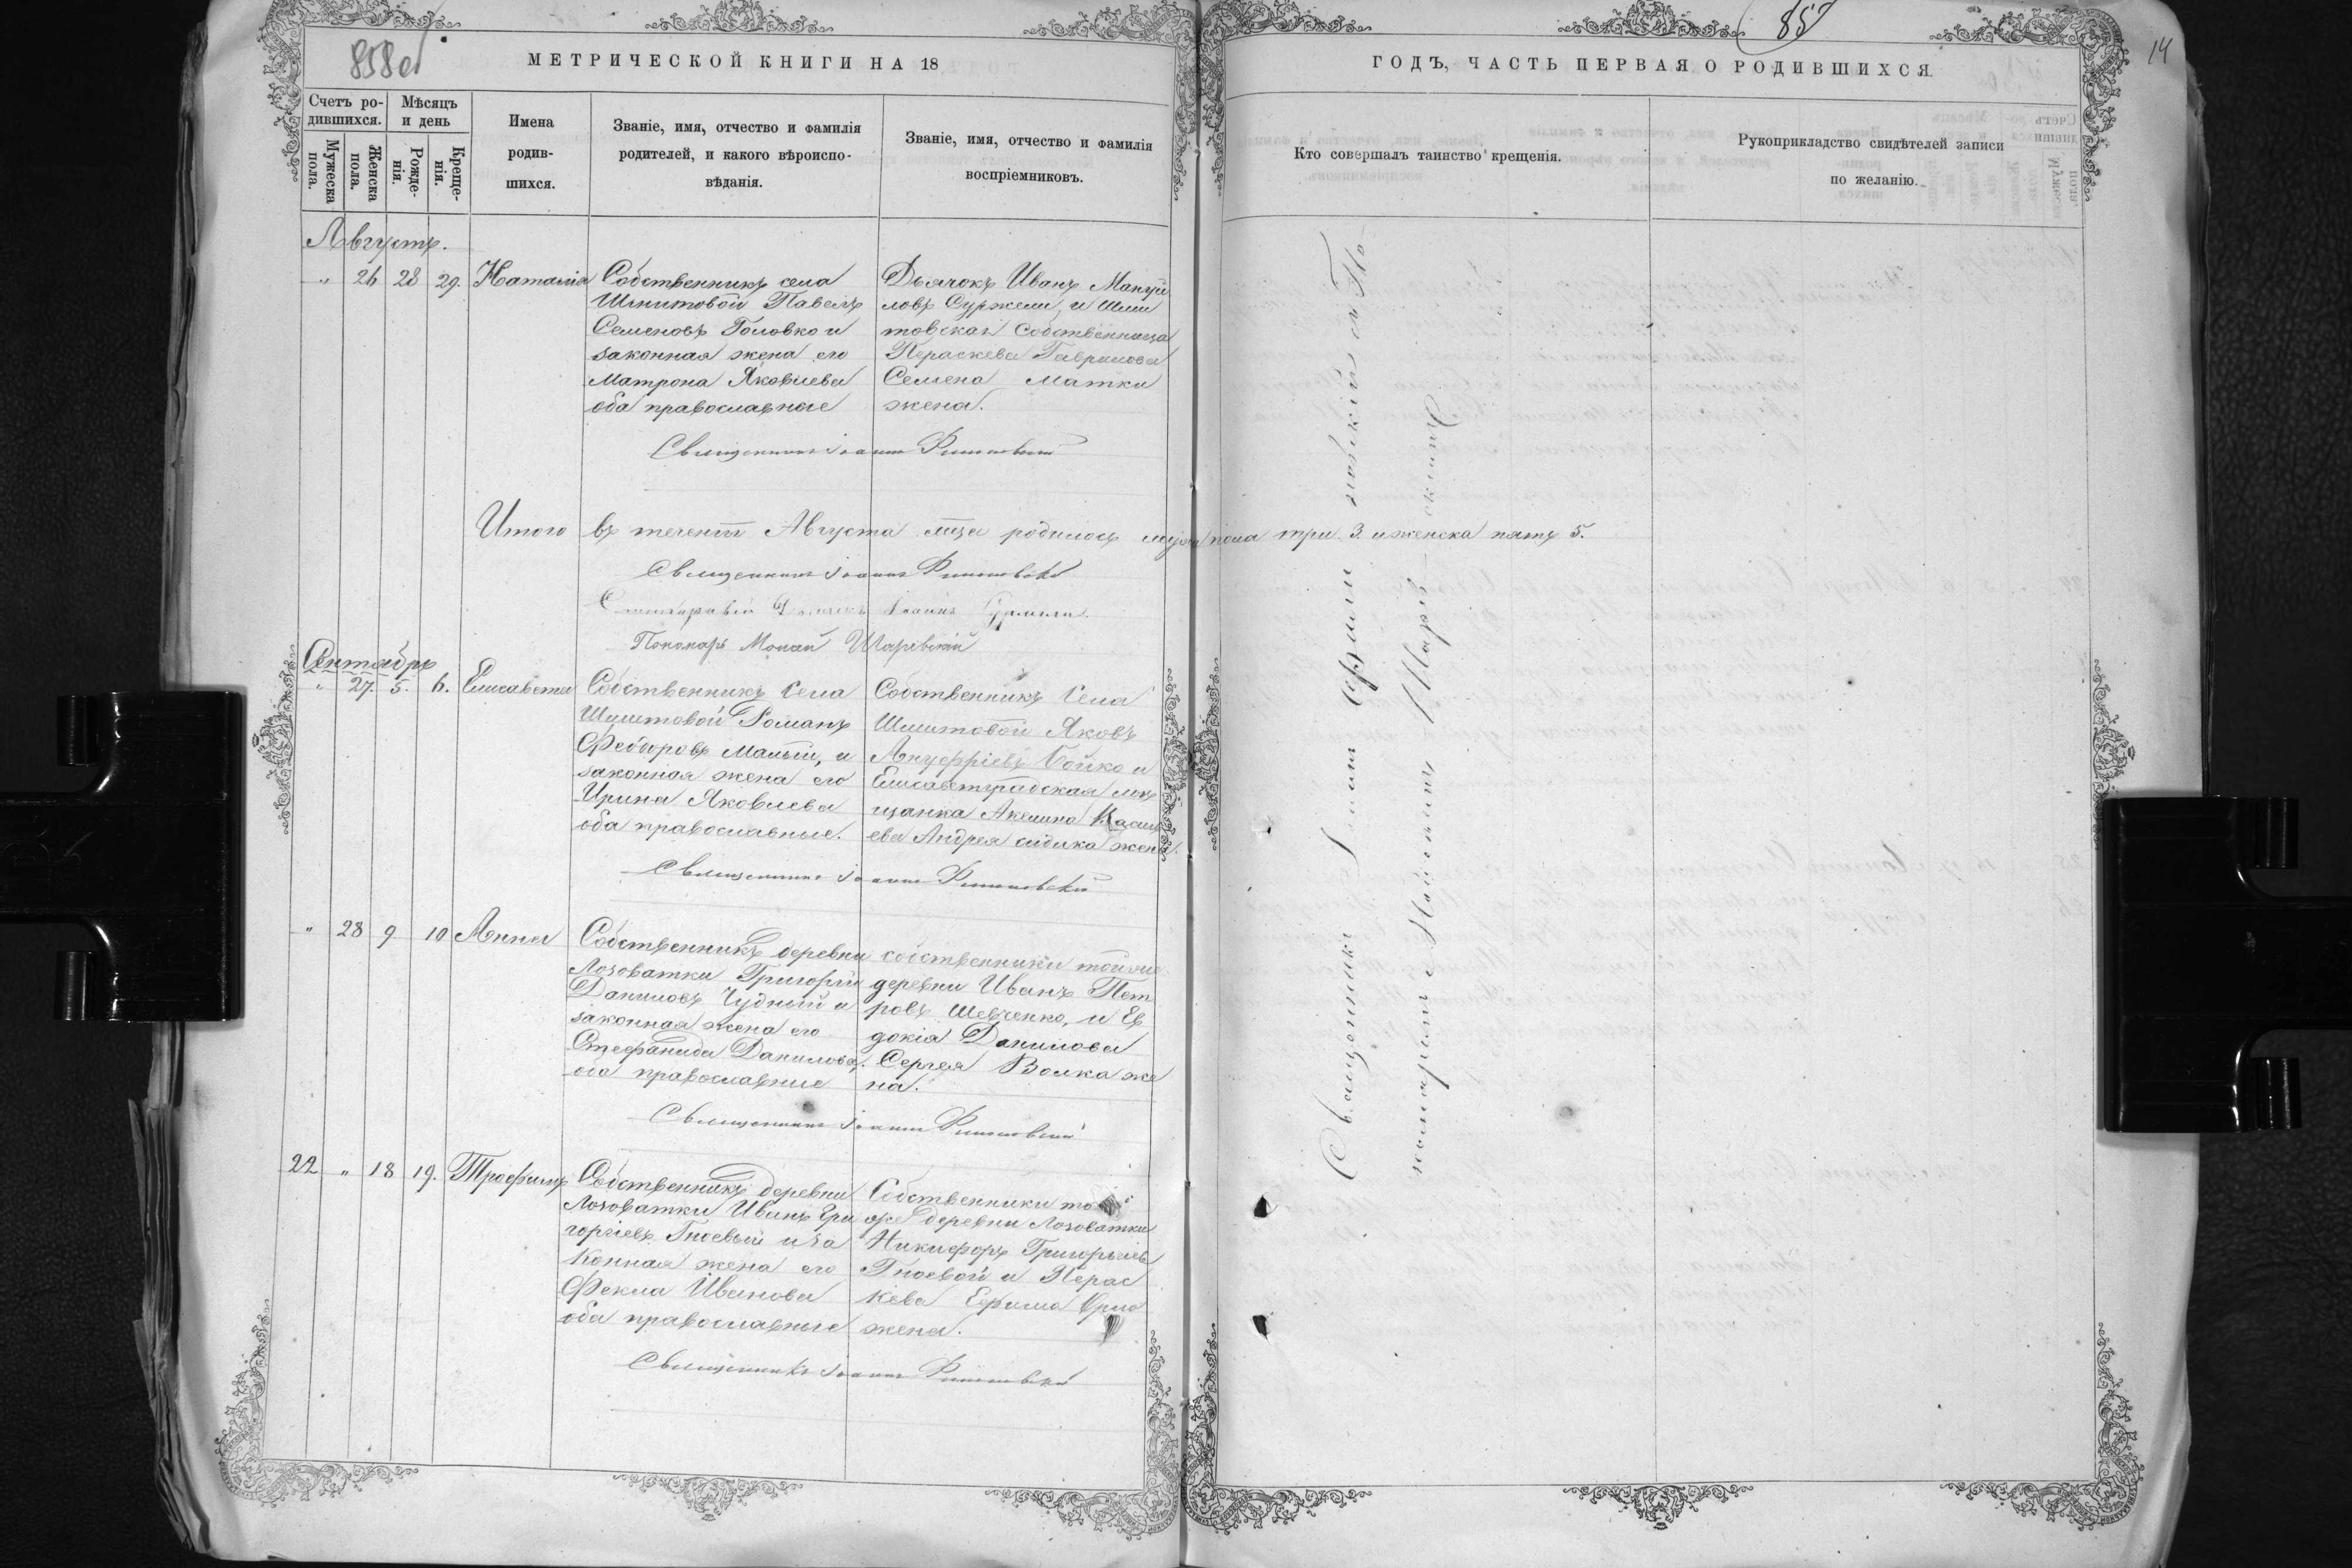 858 об
МЕТРИЧЕСКОЙ КНИГИ НА 18
Счетъ ро-
дившихся.
Мѣсяцъ
и день
Мужеска
пола.
Женска
пола.
Рожде-
нія.
Креще-
нія.
Имена
родив-
шихся.
Званіе, имя, отчество и фамилія
родителей, и какого вѣроиспо-
вѣданія.
Званіе, имя, отчество и фамилія
воспріемниковъ.
Августъ.
" 26 28 29. Наталія
Собственникъ села
Павелъ
Семеновъ Головко и
законная жена его
Матрона Яковлева
оба православные
Дьячокъ Иванъ Мануй
ловъ и Шми
товская собственница
Параскева Гаврилова
Семена Матки
жена.
Священникъ Іоаннъ
Итого въ теченіи Августа мца родилось муж. пола три 3. и женска пять 5.
Священникъ Іоаннъ
Іоаннъ
Пономарь Шаревскій
Сентябрь
" 27. 5. 6. Елисавета
Собственникъ села
Романъ
Федоровъ Малый, и
законная жена его
Ирина Яковлева
оба православные.
Собственникъ села
Яковъ
Ануфріевъ Бойко и
Елисаветградская мѣ
щанка Акилина Васил
ева Андрея жена.
Священникъ Іоаннъ
" 28 9 10 Анна
Собственникъ деревни
Лозоватки Григорій
Даниловъ Чудный и
законная жена его
Стефанида Данилова.
оба православные
собственники той же
деревни Иванъ Пет
ровъ Шевченко, и Ев
докія Данилова
Сергея Волка же
на.
Священникъ Іоаннъ
22 " 18 19. Трофимъ
Собственникъ деревни
Лозоватки Иванъ Гри
горіевъ Гноевый и за
конная жена его
Фекла Иванова
оба православные
Собственники той
же деревни Лозоватки
Никифоръ Григорьевъ
Гноевой и Парас
кева Ефима
жена.
Священникъ Іоаннъ
857
14
ГОДЪ, ЧАСТЬ ПЕРВАЯ О РОДИВШИХСЯ.
Кто совершалъ таинство крещенія.
Рукоприкладство свидѣтелей записи
по желанію.
Священникъ Іоаннъ съ По-
номаремъ Шарев-
скимъ